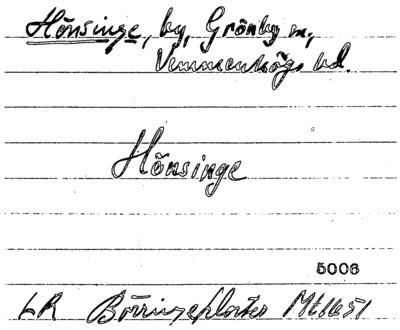 Hönsinge, by, Grönby sn,
Vemmenhögs hd.
Hönsinge
5006
LR Börringekloster Mt 1651